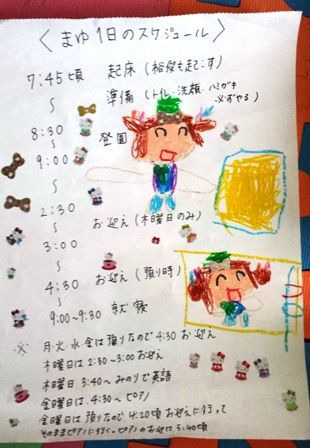 ＜まゆ1日のスケジュール＞
7:45頃 起床(裕俊も起こす)
〜 準備(トイレ・洗顔・ハミガキ
必ずやる)
8:30
〜 登園
9:00
〜
2:30
〜 お迎え(木曜日のみ)
3:00
〜
4:30 お迎え(預り時)
〜
9:00~9:30 就寝
※ 月・火・水・金は預りなので4:30お迎え
木曜日は2:30~3:00お迎え
木曜日 3:40〜みのりで英語
金曜日は、4:30〜ピアノ
金曜日は預りなので4:20頃お迎えに行って
そのままピアノに行く。ピアノのお迎は5:40頃